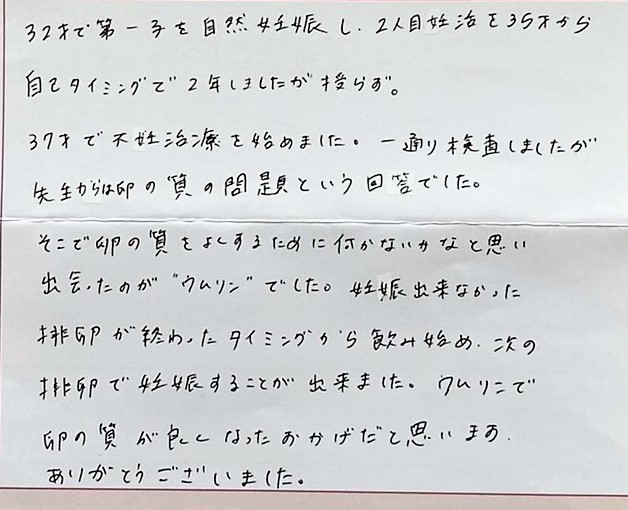 32才で第一子を自然妊娠し、2人目妊治を35才から
自己タイミングで2年しましたが授らず。
37才で不妊治療を始めました。一通り検査しましたが
先生からは卵の質の問題という回答でした。
そこで卵の質をよくするために何かないかなと思い
出会ったのが"ウムリン"でした。妊娠出来なかった
排卵が終わったタイミングから飲み始め、次の
排卵で妊娠することが出来ました。ウムリンで
卵の質が良くなったおかげだと思います。
ありがとうございました。